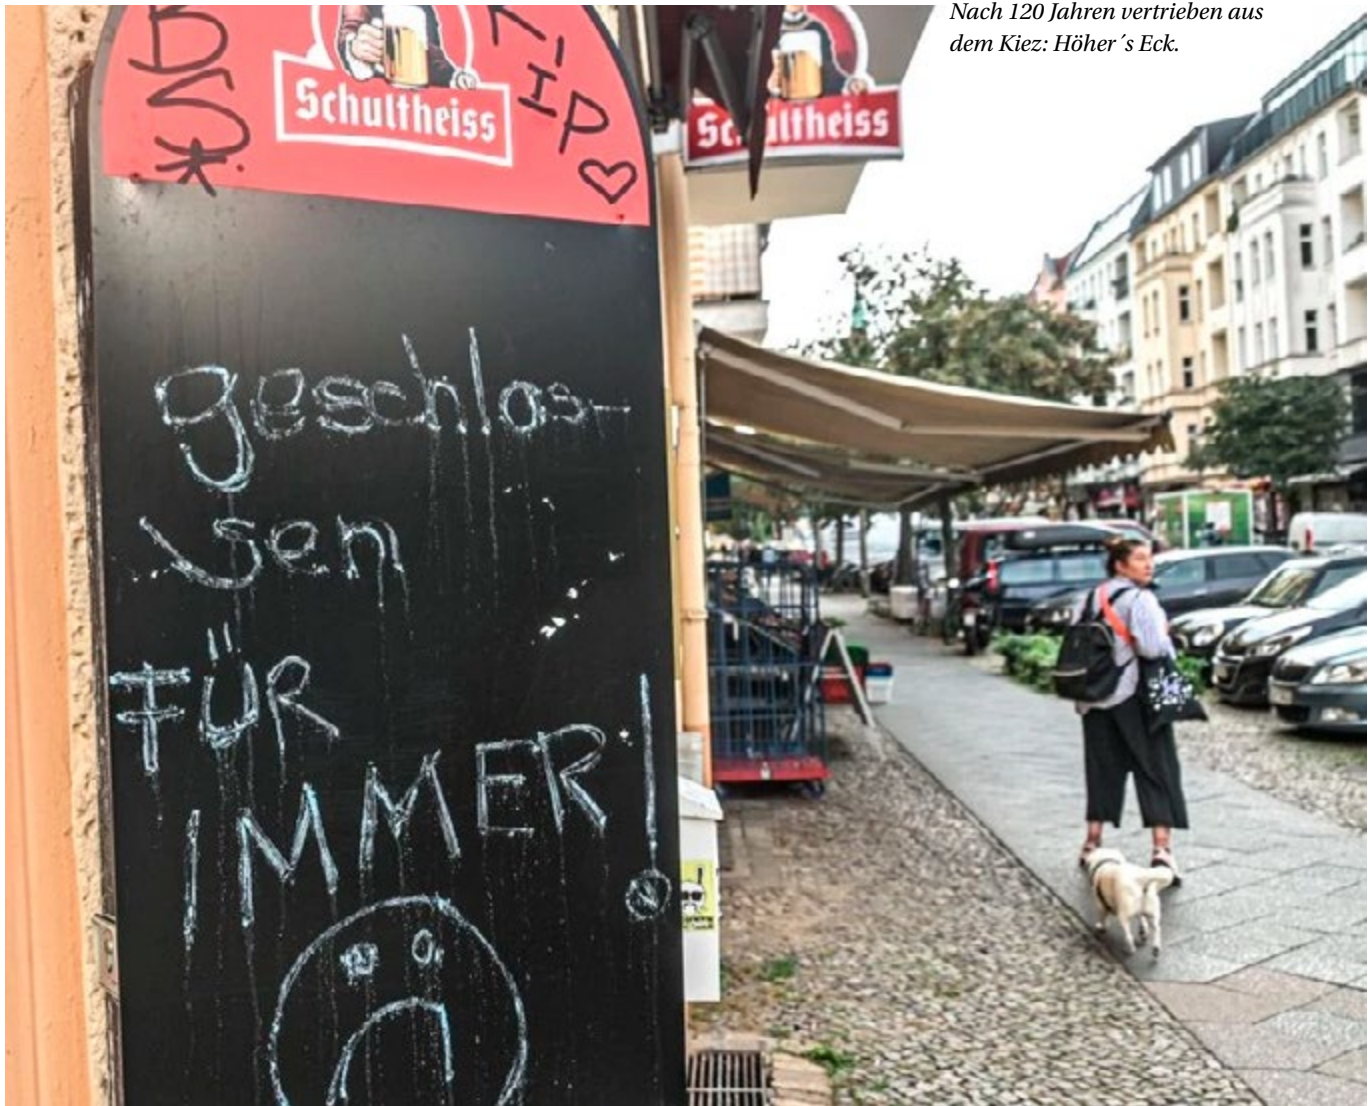 Nach 120 Jahren vertrieben aus
dem Kiez: Höher´s Eck.
Schultheiss
Schultheiss
B
S*
RIP
geschlos-
sen
FÜR
IMMER!